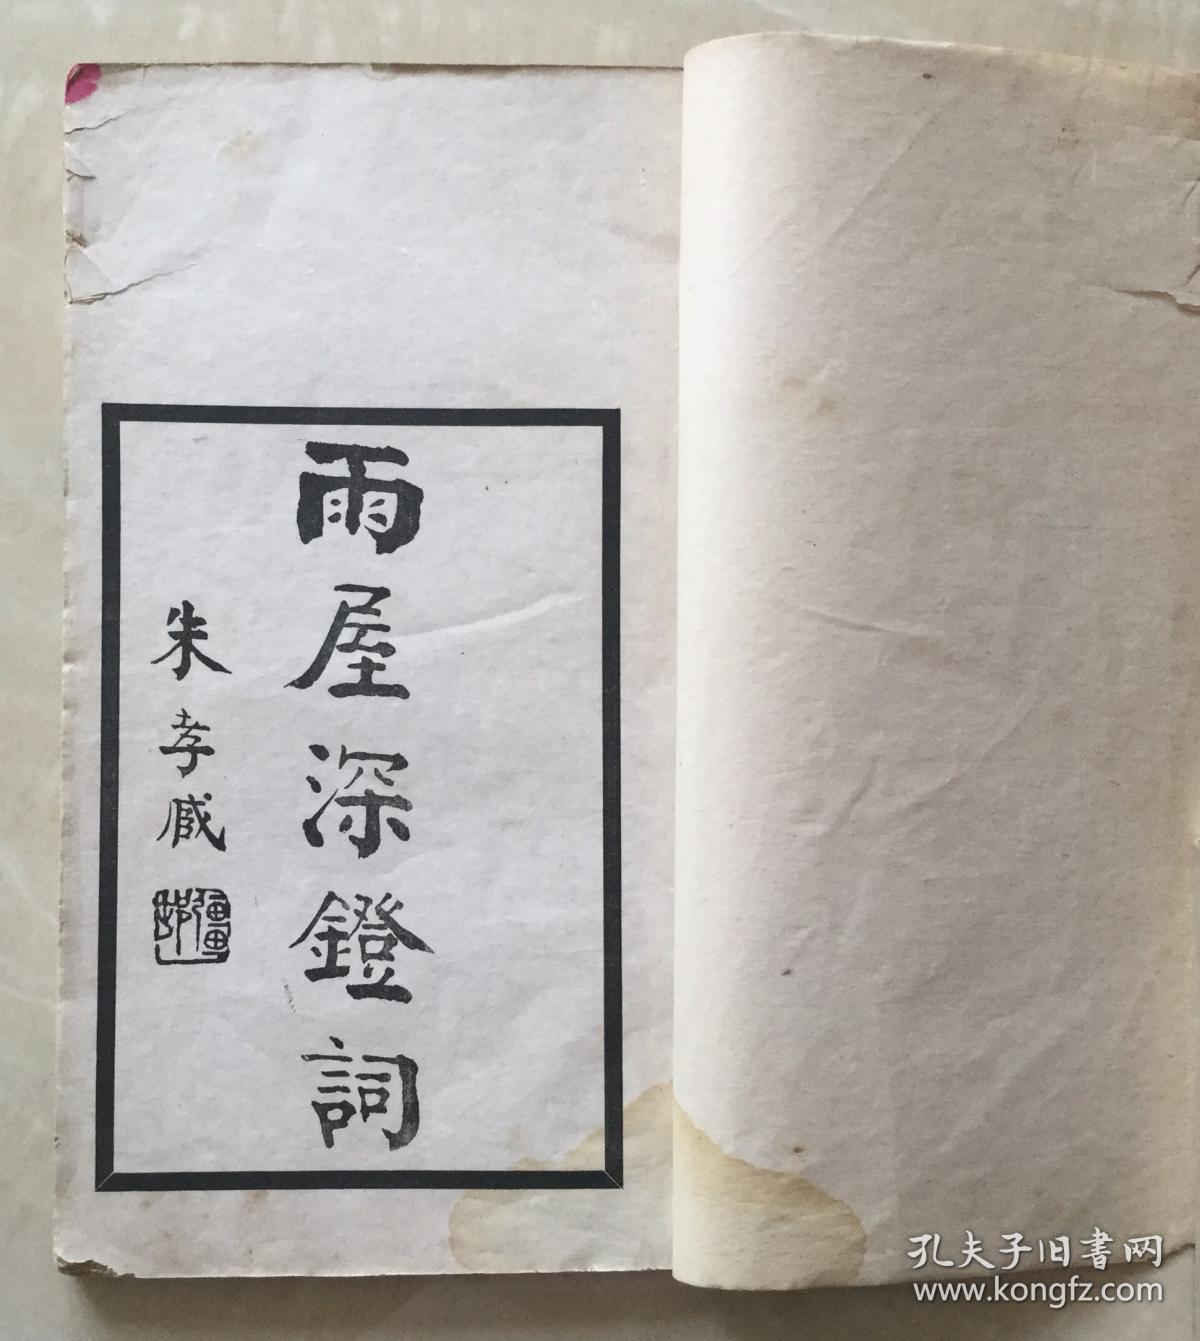 雨屋深鐙詞
朱孝臧
彊邨
孔夫子旧書网
www.kongfz.com